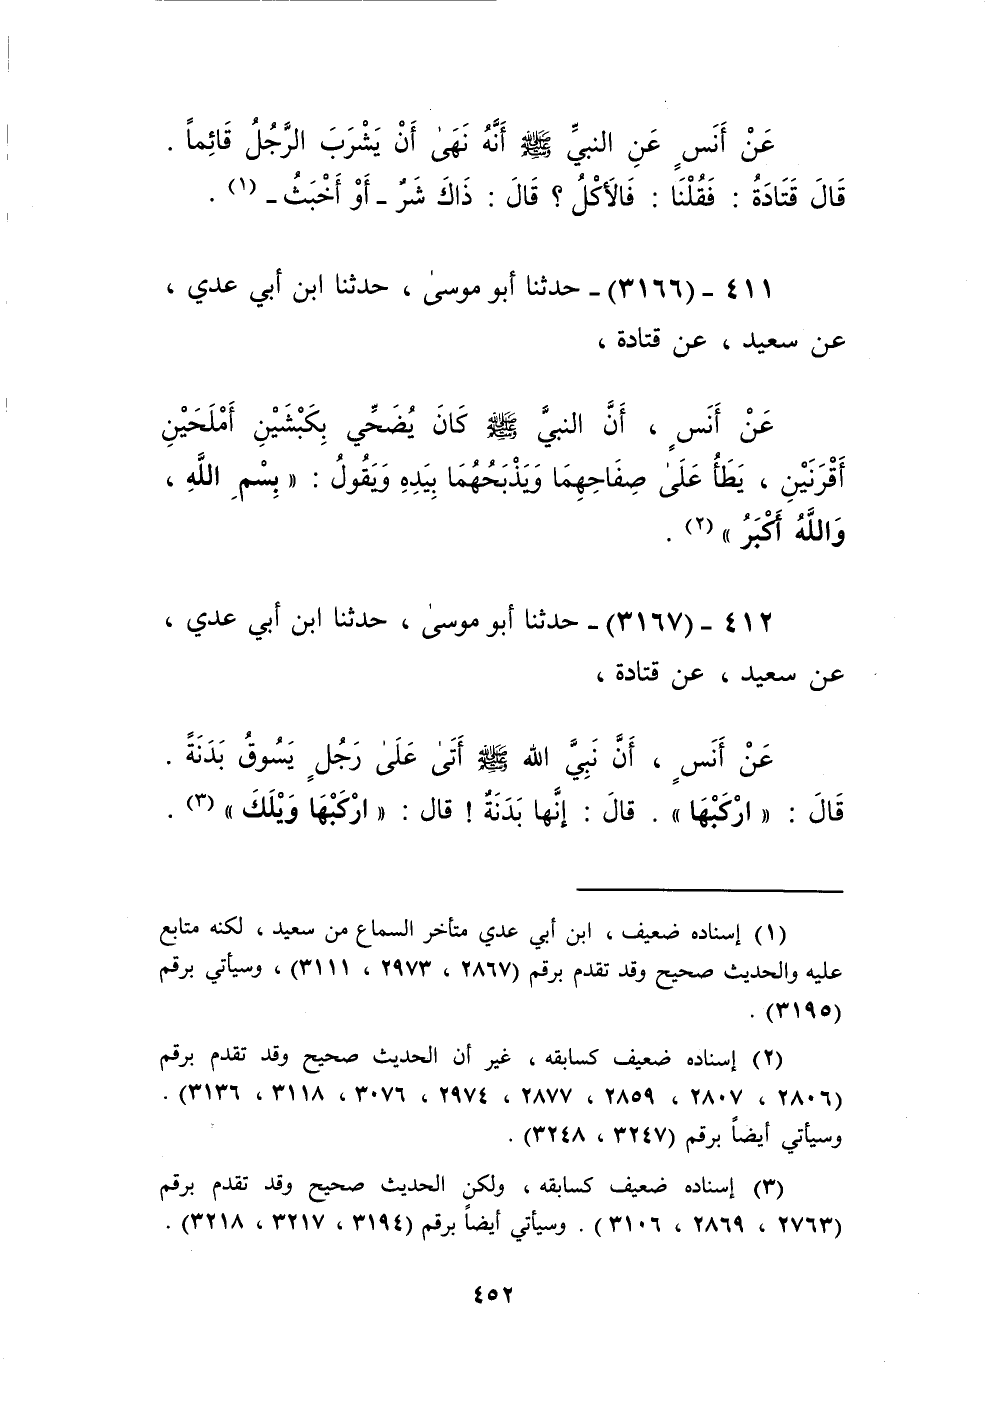 عَنْ أَنَسٍ عَنِ النبيِّ ﷺ أَنَّهُ نَهَىٰ أَنْ يَشْرَبَ الرَّجُلُ قَائِماً .
قَالَ قَتَادَةُ : فَقُلْنَا : فَالأَكْلُ ؟ قَالَ : ذَاكَ شَرٌ ـ أَوْ أَخْبَثُ ـ (١) .
٤١١ ـ (٣١٦٦) ـ حدثنا أبو موسىٰ ، حدثنا ابن أبي عدي ،
عن سعيد ، عن قتادة ،
عَنْ أَنَسٍ ، أَنَّ النبيَّ ﷺ كَانَ يُضَحِّي بِكَبْشَيْنِ أَمْلَحَيْنِ
أَقْرَنَيْنِ ، يَطَأُ عَلَىٰ صِفَاحِهِمَا وَيَذْبَحُهُمَا بِيَدِهِ وَيَقُولُ : « بِسْمِ اللَّهِ ،
وَاللَّهُ أَكْبَرُ » (٢) .
٤١٢ ـ (٣١٦٧) ـ حدثنا أبو موسىٰ ، حدثنا ابن أبي عدي ،
عن سعيد ، عن قتادة ،
عَنْ أَنَسٍ ، أَنَّ نَبِيَّ الله ﷺ أَتَىٰ عَلَىٰ رَجُلٍ يَسُوقُ بَدَنَةً .
قَالَ : « ارْكَبْهَا » . قالَ : إِنَّها بَدَنَةٌ ! قال : « ارْكَبْهَا وَيْلَكَ » (٣) .
(١) إسناده ضعيف ، ابن أبي عدي متأخر السماع من سعيد ، لكنه متابع
عليه والحديث صحيح وقد تقدم برقم (٢٨٦٧ ، ٢٩٧٣ ، ٣١١١) ، وسيأتي برقم
(٣١٩٥) .
(٢) إسناده ضعيف كسابقه ، غير أن الحديث صحيح وقد تقدم برقم
(٢٨٠٦ ، ٢٨٠٧ ، ٢٨٥٩ ، ٢٨٧٧ ، ٢٩٧٤ ، ٣٠٧٦ ، ٣١١٨ ، ٣١٣٦) .
وسيأتي أيضاً برقم (٣٢٤٧ ، ٣٢٤٨) .
(٣) إسناده ضعيف كسابقه ، ولكن الحديث صحيح وقد تقدم برقم
(٢٧٦٣ ، ٢٨٦٩ ، ٣١٠٦) . وسيأتي أيضاً برقم (٣١٩٤ ، ٣٢١٧ ، ٣٢١٨) .
٤٥٢